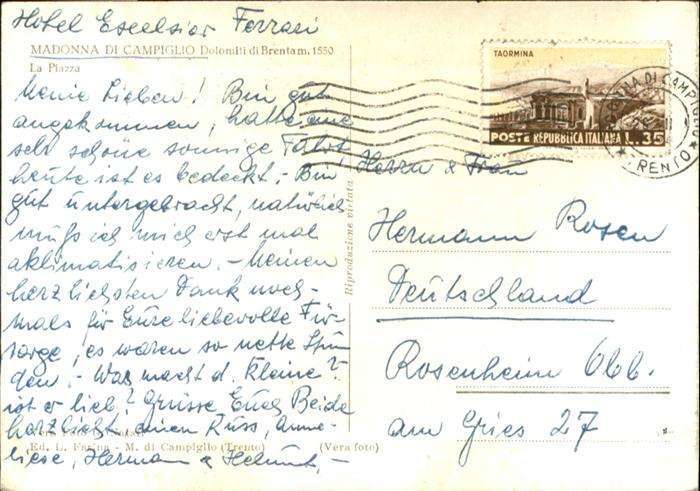 Hotel Excelsior Ferrari
MADONNA DI CAMPIGLIO Dolomiti di Brenta m. 1550
La Piazza
Meine Lieben! Bin gut
angekommen, hatte eine
sehr schöne sonnige Fahrt,
heute ist es bedeckt. - Bin
gut untergebracht, natürlich
muß ich mich erst mal
aklimatisieren. - Meinen
herzlichsten Dank noch-
mals für Eure liebevolle Für-
sorge, es waren so nette Stun-
den. - Was macht d. Kleine?
ist er lieb? Grüsse Euch Beide
herzlichst einen Kuss, Anne-
liese, Hermann & Helmut, -
Ed. L. - M. di Campiglio (Trento) (Vera foto)
Riproduzione vietata
TAORMINA
POSTE REPUBBLICA ITALIANA L.35
DI CAMP
TRENTO
Herrn & Frau
Hermann Rosen
Deutschland
Rosenheim Obb.
am Gries 27